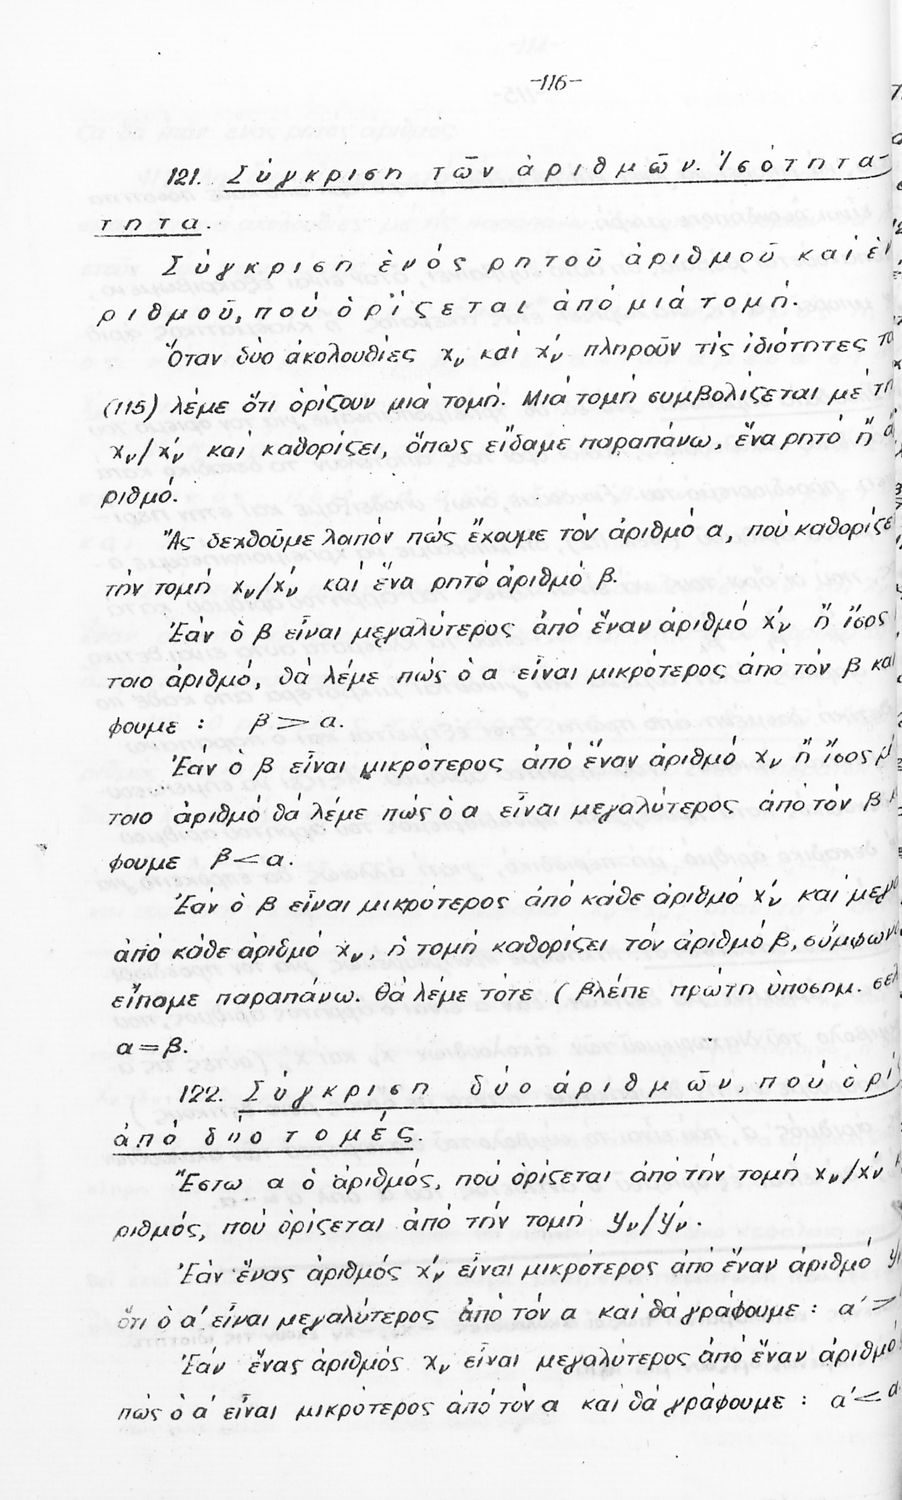 -116-
121. Σύγκριση τῶν ἀριθμῶν. Ἰσότητα-
τητα.
Σύγκριση ἑνός ρητοῦ ἀριθμοῦ καί ἑν
ριθμοῦ, πού ὁρίζεται ἀπό μιά τομή.
Ὅταν δύο ἀκολουθίες χν καί χ′ν πληροῦν τίς ἰδιότητες το
(115) λέμε ὅτι ὁρίζουν μιά τομή. Μιά τομή συμβολίζεται μέ τη
χν/χ′ν καί καθορίζει, ὅπως εἴδαμε παραπάνω, ἕνα ρητό ἤ ἀ
ριθμό.
Ἄς δεχθοῦμε λαπόν πώς ἔχουμε τόν ἀριθμό α, πού καθορίζε
τήν τομή χν/χ′ν καί ἕνα ρητό ἀριθμό β.
Ἐάν ὁ β εἶναι μεγαλύτερος ἀπό ἕναν ἀριθμό χ′ν ἤ ἴσος
τοιο ἀριθμό, θά λέμε πώς ὁ α εἶναι μικρότερος ἀπό τόν β και
φουμε : β > α.
Ἐάν ο β εἶναι μικρότερος ἀπό ἕναν ἀριθμό χν ἤ ἴσος μ
τοιο ἀριθμό θά λέμε πώς ὁ α εἶναι μεγαλύτερος ἀπό τόν β
φουμε β < α.
Ἐάν ὁ β εἶναι μικρότερος ἀπό κάθε ἀριθμό χ′ν καί μεγα
ἀπό κάθε ἀριθμό χν, ἡ τομή καθορίζει τόν ἀριθμό β, σύμφωνα
εἴπαμε παραπάνω. θά λέμε τότε ( βλέπε πρώτη ὑποσημ. σελ
α = β.
122. Σύγκριση δύο ἀριθμῶν, πού ὁρί
ἀπό δύο τομές.
Ἔστω α ὁ ἀριθμός, πού ὁρίζεται ἀπό τήν τομή χν/χ′ν
ριθμός, πού ὁρίζεται ἀπό τήν τομή yν/y′ν.
Ἐάν ἕνας ἀριθμός χ′ν εἶναι μικρότερος ἀπό ἕναν ἀριθμό y
ὅτι ὁ α′ εἶναι μεγαλύτερος ἀπό τόν α καί θά γράφουμε : α′ >
Ἐάν ἕνας ἀριθμός χν εἶναι μεγαλύτερος ἀπό ἕναν ἀριθμό
πώς ὁ α′ εἶναι μικρότερος ἀπό τόν α καί θά γράφουμε : α′ < α